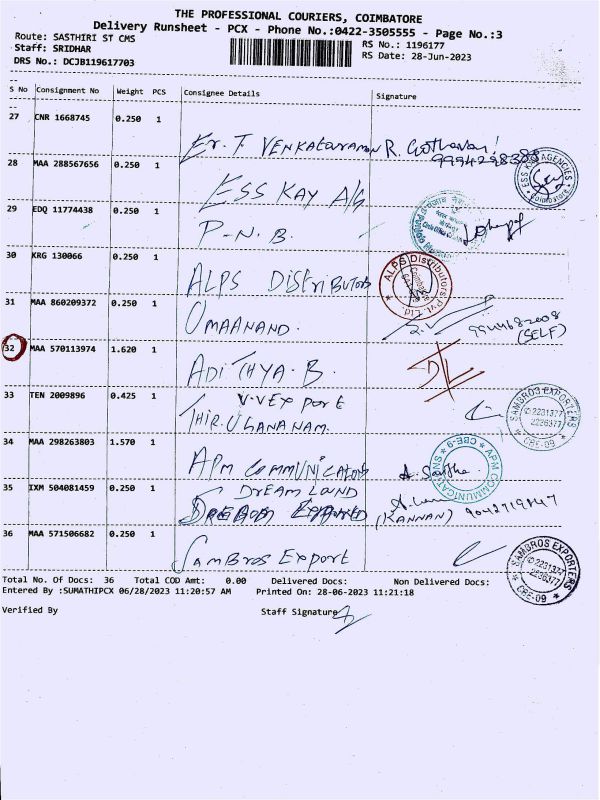 THE PROFESSIONAL COURIERS, COIMBATORE
Delivery Runsheet - PCX - Phone No.:0422-3505555 - Page No.:3
Route: SASTHIRI ST CMS
RS No.: 1196177
Staff: SRIDHAR
RS Date: 28-Jun-2023
DRS No.: DCJB119617703
S No Consignment No Weight PCS Consignee Details Signature
27 CNR 1668745 0.250 1
Er. T. VENKATARAMAN R.
28 MAA 288567656 0.250 1
ESS KAY A/G
ESS KAY AGENCIES
29 EDQ 11774438 0.250 1
P.N.B.
30 KRG 130066 0.250 1
ALPS DISTRIBUTORS
ALPS Distributors Pvt. Ltd.
31 MAA 860209372 0.250 1
UMAANAND.
(SELF)
32 MAA 570113974 1.620 1
ADITHYA. B.
33 TEN 2009896 0.425 1
V.V EXPORT
SAMBROS EXPORTERS
2231377
2236377
CBE-09
34 MAA 298263803 1.570 1
APM COMMUNICATIONS
APM COMMUNICATIONS
CBE-9
35 IXM 504081459 0.250 1
DREAM
(KANNAN) 9042719847
36 MAA 571506682 0.250 1
SAMBROS EXPORT
SAMBROS EXPORTERS
2231377
2236377
CBE-09
Total No. Of Docs: 36 Total COD Amt: 0.00 Delivered Docs: Non Delivered Docs:
Entered By :SUMATHIPCX 06/28/2023 11:20:57 AM Printed On: 28-06-2023 11:21:18
Verified By Staff Signature